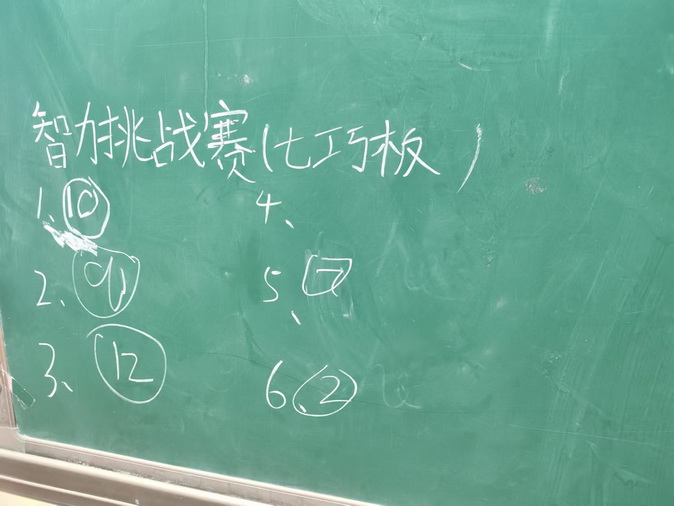 智力挑战赛(七巧板)
1、10
2、9
3、12
4、
5、7
6、2